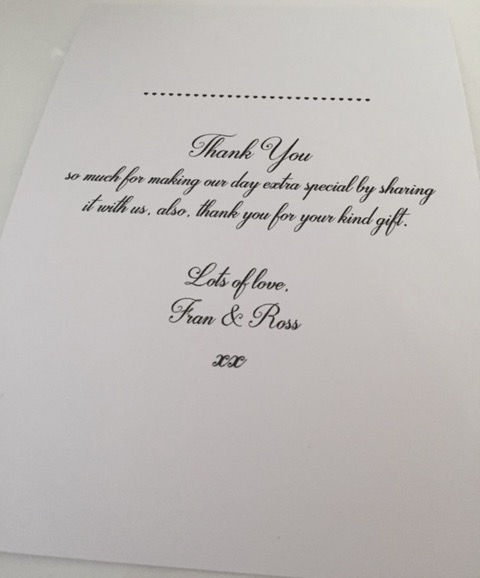 Thank You
so much for making our day extra special by sharing
it with us, also, thank you for your kind gift.
Lots of love,
Fran & Ross
xx